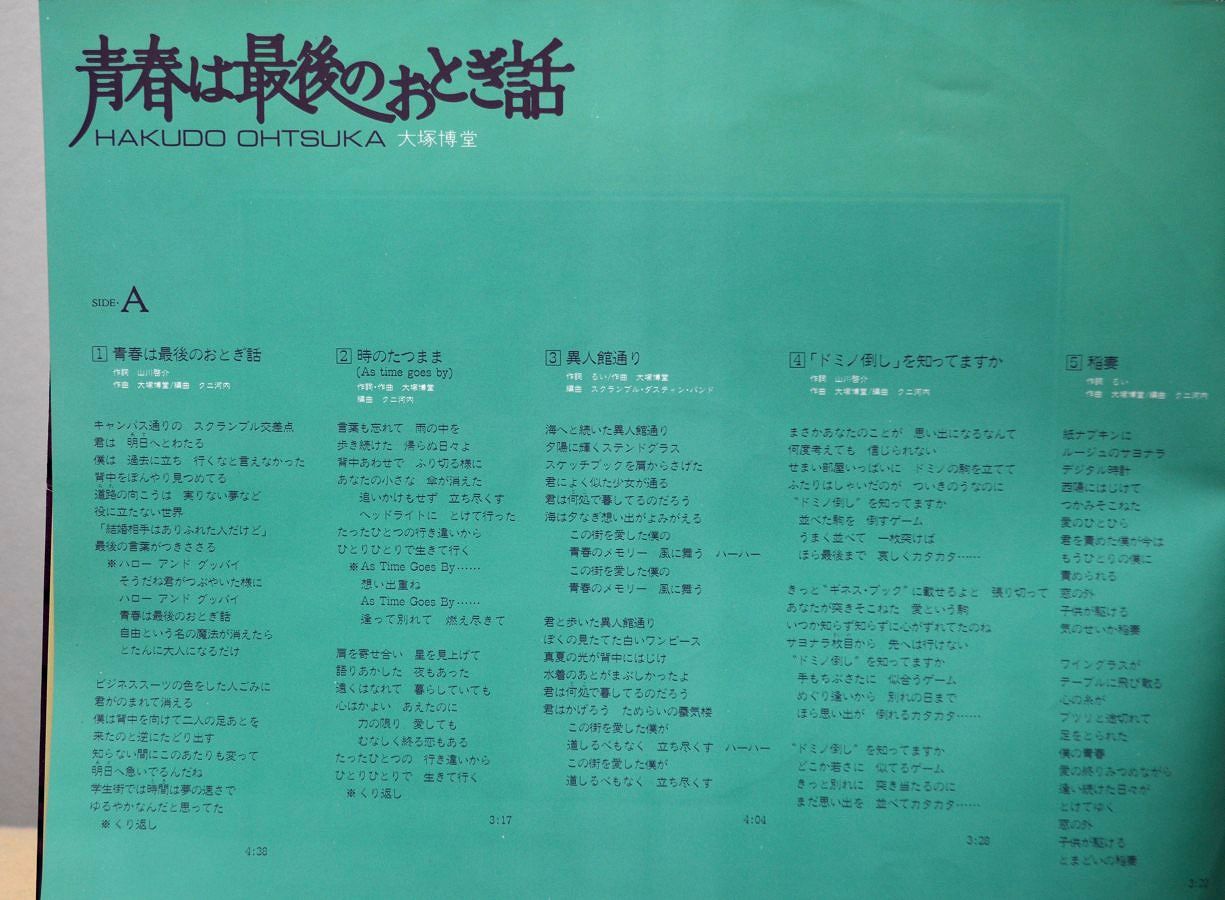 青春は最後のおとぎ話
HAKUDO OHTSUKA 大塚博堂
SIDE・A
1 青春は最後のおとぎ話
作詞 山川啓介
作曲 大塚博堂/編曲 クニ河内
キャンパス通りの スクランブル交差点
君は 明日へとわたる
僕は 過去に立ち 行くなと言えなかった
背中をぼんやり見つめてる
道路の向こうは 実りない夢など
役に立たない世界
「結婚相手はありふれた人だけど」
最後の言葉がつきささる
※ハロー アンド グッバイ
そうだね君がつぶやいた様に
ハロー アンド グッバイ
青春は最後のおとぎ話
自由という名の魔法が消えたら
とたんに大人になるだけ
ビジネススーツの色をした人ごみに
君がのまれて消える
僕は背中を向けて二人の足あとを
来たのと逆にたどり出す
知らない間にこのあたりも変って
明日へ急いでるんだね
学生街では時間は夢の速さで
ゆるやかなんだと思ってた
※くり返し
4:38
2 時のたつまま
(As time goes by)
作詞・作曲 大塚博堂
編曲 クニ河内
言葉も忘れて 雨の中を
歩き続けた 帰らぬ日々よ
背中あわせで ふり切る様に
あなたの小さな 傘が消えた
追いかけもせず 立ち尽くす
ヘッドライトに とけて行った
たったひとつの行き違いから
ひとりひとりで生きて行く
※As Time Goes By……
想い出重ね
As Time Goes By……
逢って別れて 燃え尽きて
肩を寄せ合い 星を見上げて
語りあかした 夜もあった
遠くはなれて 暮らしていても
心はかよい あえたのに
力の限り 愛しても
むなしく終る恋もある
たったひとつの 行き違いから
ひとりひとりで 生きて行く
※くり返し
3:17
3 異人館通り
作詞 るい/作曲 大塚博堂
編曲 スクランブル・ダスティン・バンド
海へと続いた異人館通り
夕陽に輝くステンドグラス
スケッチブックを肩からさげた
君によく似た少女が通る
君は何処で暮してるのだろう
海は夕なぎ想い出がよみがえる
この街を愛した僕の
青春のメモリー 風に舞う ハーハー
この街を愛した僕の
青春のメモリー 風に舞う
君と歩いた異人館通り
ぼくの見たてた白いワンピース
真夏の光が背中にはじけ
水着のあとがまぶしかったよ
君は何処で暮してるのだろう
君はかげろう ためらいの蜃気楼
この街を愛した僕が
道しるべもなく 立ち尽くす ハーハー
この街を愛した僕が
道しるべもなく 立ち尽くす
4:04
4 「ドミノ倒し」を知ってますか
作詞 山川啓介
作曲 大塚博堂/編曲 クニ河内
まさかあなたのことが 思い出になるなんて
何度考えても 信じられない
せまい部屋いっぱいに ドミノの駒を立てて
ふたりはしゃいだのが ついきのうなのに
“ドミノ倒し”を知ってますか
並べた駒を 倒すゲーム
うまく並べて 一枚突けば
ほら最後まで 哀しくカタカタ……
きっと“ギネス・ブック”に載せるよと 張り切って
あなたが突きそこねた 愛という駒
いつか知らず知らずに心がずれてたのね
サヨナラ枚目から 先へは行けない
“ドミノ倒し”を知ってますか
手もちぶさたに 似合うゲーム
めぐり逢いから 別れの日まで
ほら思い出が 倒れるカタカタ……
“ドミノ倒し”を知ってますか
どこか若さに 似てるゲーム
きっと別れに 突き当たるのに
まだ思い出を 並べてカタカタ……
3:28
5 稲妻
作詞 るい
作曲 大塚博堂/編曲 クニ河内
紙ナプキンに
ルージュのサヨナラ
デジタル時計
西陽にはじけて
つかみそこねた
愛のひとひら
君を責めた僕が今は
もうひとりの僕に
責められる
窓の外
子供が駆ける
気のせいか稲妻
ワイングラスが
テーブルに飛び散る
心の糸が
プツリと途切れて
足をとられた
僕の青春
愛の終りみつめながら
逢い続けた日々が
とけてゆく
窓の外
子供が駆ける
とまどいの稲妻